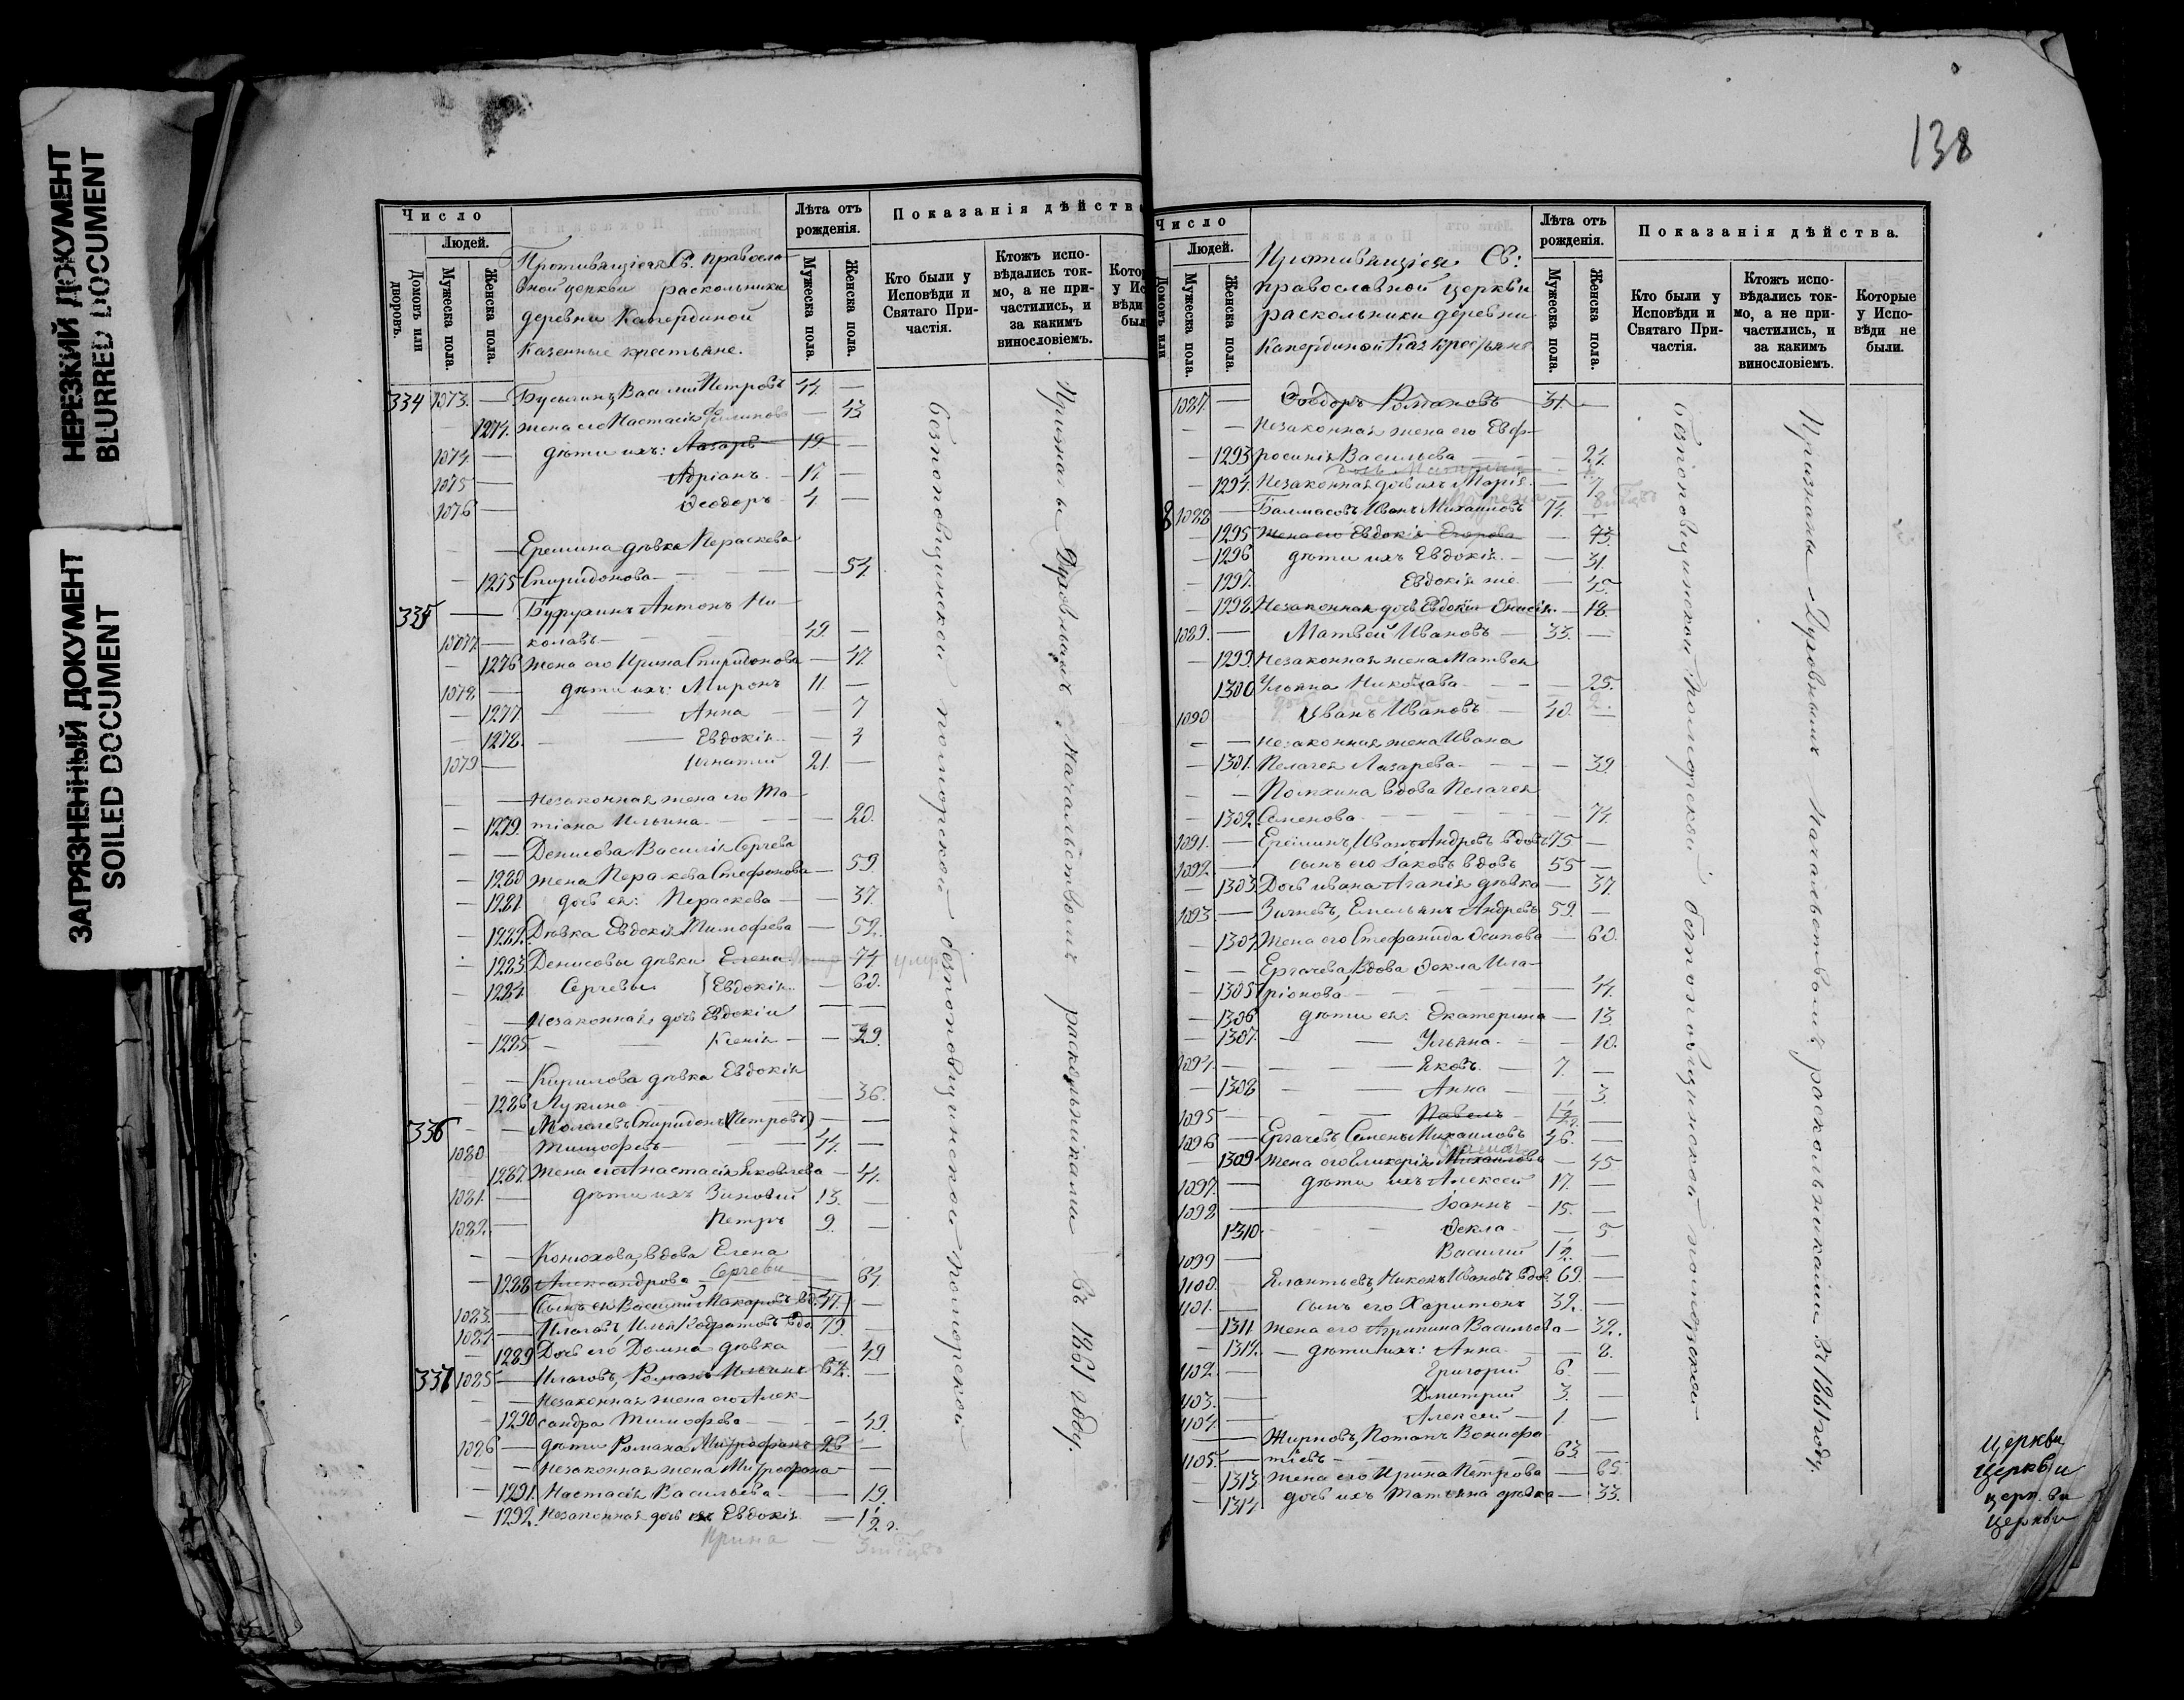 НЕРЕЗКИЙ ДОКУМЕНТ
BLURRED DOCUMENT
ЗАГРЯЗНЕННЫЙ ДОКУМЕНТ
SOILED DOCUMENT
Число
Людей.
Домовъ или дворовъ.
Мужеска пола.
Женска пола.
Противящіеся Св. правосла-
вной церкви раскольники
деревни Капердиной
Казенные крестьяне.
Лѣта отъ рожденія.
Мужеска пола.
Женска пола.
Показанія дѣйства
Кто были у Исповѣди и Святаго Причастія.
Ктожъ исповѣдались токмо, а не причастились, и за какимъ винословіемъ.
334 1073. — Бусыгинъ, Василій Петровъ 44. —
1274. жена его Настасія Филипова — 43
1074. — дѣти ихъ: Лазарь 19 —
1075 — Адріанъ —
1076 — Ѳеодоръ 4 —
Еремина дѣвка Пераскева
1275 Спиридонова — 54.
335 — Антонъ Ни-
колаевъ 49. —
1276 жена его Ирина Спиридонова — 47.
1078. — дѣти ихъ: Миронъ 11 —
1277. Анна — 7
1278. Евдокія — 3
1079 — Игнатій 21. —
Незаконная жена его Та-
1279. тіана Ильина — 20.
Денисова Василія Сергѣева
1280 жена Пераскева Стефанова — 59.
1281. дочь ея: Пераскева — 37.
1282. Дѣвка Евдокія Тимофѣева — 52.
1283 Денисовы дѣвки Елена — 74 умр
1284. Сергѣевы Евдокія — 60.
Незаконная дочь Евдокіи
1285 Ксенія — 29.
Кирилова дѣвка Евдокія
1286 Лукина — 36.
336 Спиридонъ (Петровъ)
1080 Тимофѣевъ 44. —
1287. жена его Анастасія Яковлева — 44.
1081. — дѣти ихъ Зиновій 13. —
1082. — Петръ 9. —
Конюхова, вдова Елена
1288 Александрова Сергѣева — 64.
1083. — Сынъ ея Василій Макаровъ вд. 47. —
1084. — Илья вдо. 79. —
1289 Дочь его Домна дѣвка — 49
337 1085 — Романъ Ильинъ 62. —
Незаконная жена его Алек-
1290 сандра Тимофѣева — 49.
1086 — дѣти Романа Митрофанъ 26 —
Незаконная жена Митрофана
1291. Настасія Васильева — 19.
1292. Незаконная дочь ихъ Евдокія — 1 1/2 г.
Ирина — 3 мѣсяц
безпоповщинской поморской безпоповщинской поморской
Признаны Духовнымъ Начальствомъ раскольниками въ 1861 году.
138
Число
Людей.
Домовъ или
Мужеска пола.
Женска пола.
Противящіеся Св:
православной церкви
раскольники деревни
Капердиной Каз крестьяне
Лѣта отъ рожденія.
Мужеска пола.
Женска пола.
Показанія дѣйства.
Кто были у Исповѣди и Святаго Причастія.
Ктожъ исповѣдались токмо, а не причастились, и за какимъ винословіемъ.
Которые у Исповѣди не были.
1087. — Ѳеодоръ Романовъ 31 —
Незаконная жена его Евф-
1293 росинія Васильева — 24.
1294. Незаконная дочь ихъ Марія — 7
1088 — Балмасовъ Иванъ Михаиловъ 74. —
1295 жена его Евдокія Егорова — 73.
1296 дѣти ихъ Евдокія — 31
1297. Евдокія же — 45
1298. Незаконная дочь Евдокіи Онисія — 18
1089. — Матвей Ивановъ 33. —
1299. Незаконная жена Матвея
1300 Ульяна Николаева — 25.
1090 Иванъ Ивановъ 40. —
Незаконная жена Ивана
1301. Пелагея Лазарева — 39.
вдова Пелагея
1302. Семенова — 74.
1091. — Ереминъ, Иванъ Андреевъ вдовъ 75 —
1092 — сынъ его Іаковъ вдовъ 55 —
1303 Дочь Ивана Агапія дѣвка — 37.
1093. — Емельянъ Андреевъ 59. —
1304 Жена его Стефанида Осипова — 60.
Ергачева, вдова Ѳекла Ила-
1305 ріонова — 44.
1306 дѣти ея: Екатерина — 13.
1307. Ульяна — 10.
1094. — Яковъ 7. —
1308 Анна — 3.
1095 Павелъ 1 1/2 —
1096 — Ергачевъ Семенъ Михаиловъ 46. —
1309 жена его Гликерія Михаилова — 45
1097. — дѣти ихъ Алексей 17. —
1098 Іоаннъ 15. —
1310. Ѳекла — 5
1099 — Василій 1 1/2. —
1100. Елантьевъ, Никонъ Ивановъ вдов. 69. —
1101. — сынъ его Харитонъ 32. —
1311 жена его Агрипина Васильева — 32.
1312. — дѣти ихъ: Анна — 8.
1102. — Григорій 6. —
1103. — Дмитрій 3. —
1104. — Алексей 1 —
Жирновъ, Потапъ Вонифа-
1105. — тіевъ 63. —
1313. жена его Ирина Петрова — 65.
1314 дочь ихъ Татьяна дѣвка — 33.
безпоповщинской поморской безпоповщинской поморской
Признаны Духовнымъ Начальствомъ раскольниками въ 1861 году.
Церкви
Церкви
церкви
Церкви